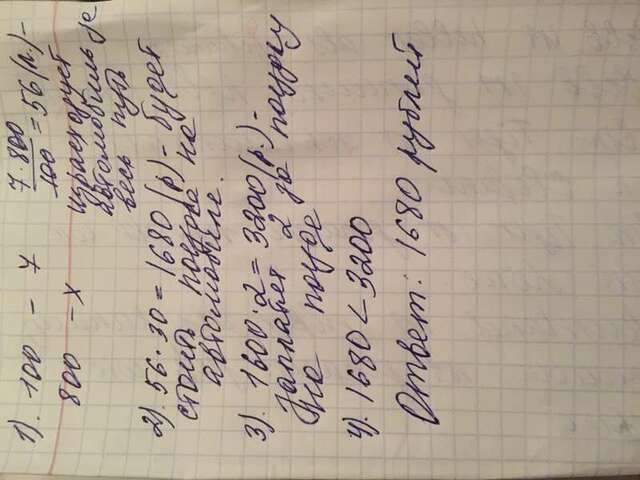 1). 100 - 7   7·800/100 = 56 (л.) -
800 - х   израсходует
автомобиль за
весь путь
2). 56·30 = 1680 (р) - будет
стоить поездка на
автомобиле.
3). 1600·2 = 3200 (р.) -
заплатят 2 за поездку
на поезде
4). 1680 < 3200
Ответ: 1680 рублей